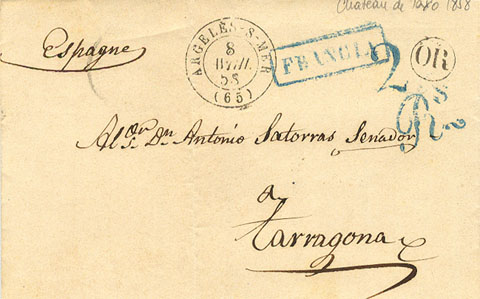 Chateau de Taxo 1858
Espagne
ARGELÈS-S-MER
8
58
(65)
FRANCIA
OR
2 Rs
Al Sor. Dn. Antonio Satorras Senador
a
Tarragona